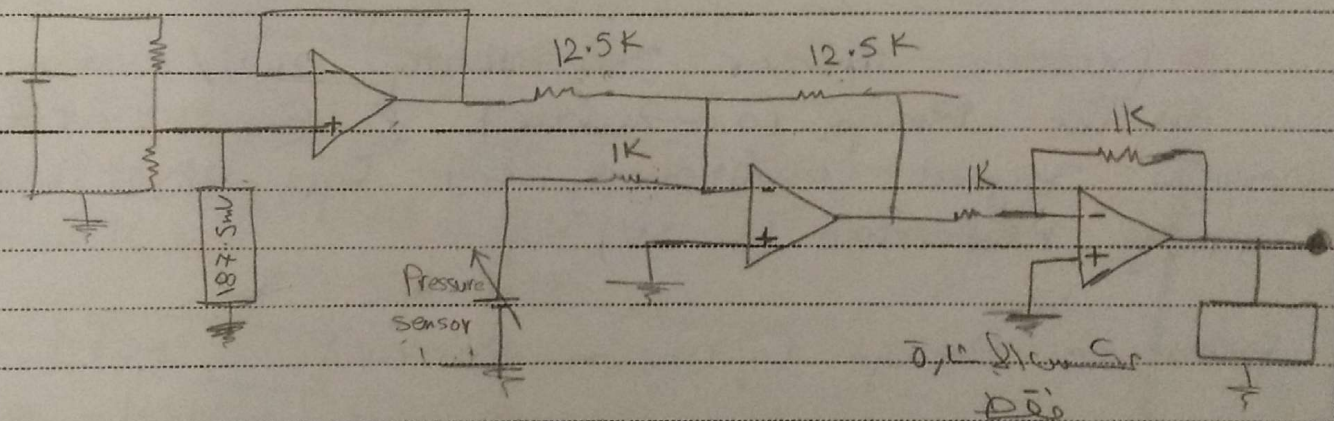 12.5K
12.5K
1K
1K
1K
-
+
-
+
-
+
187.5mV
Pressure
sensor